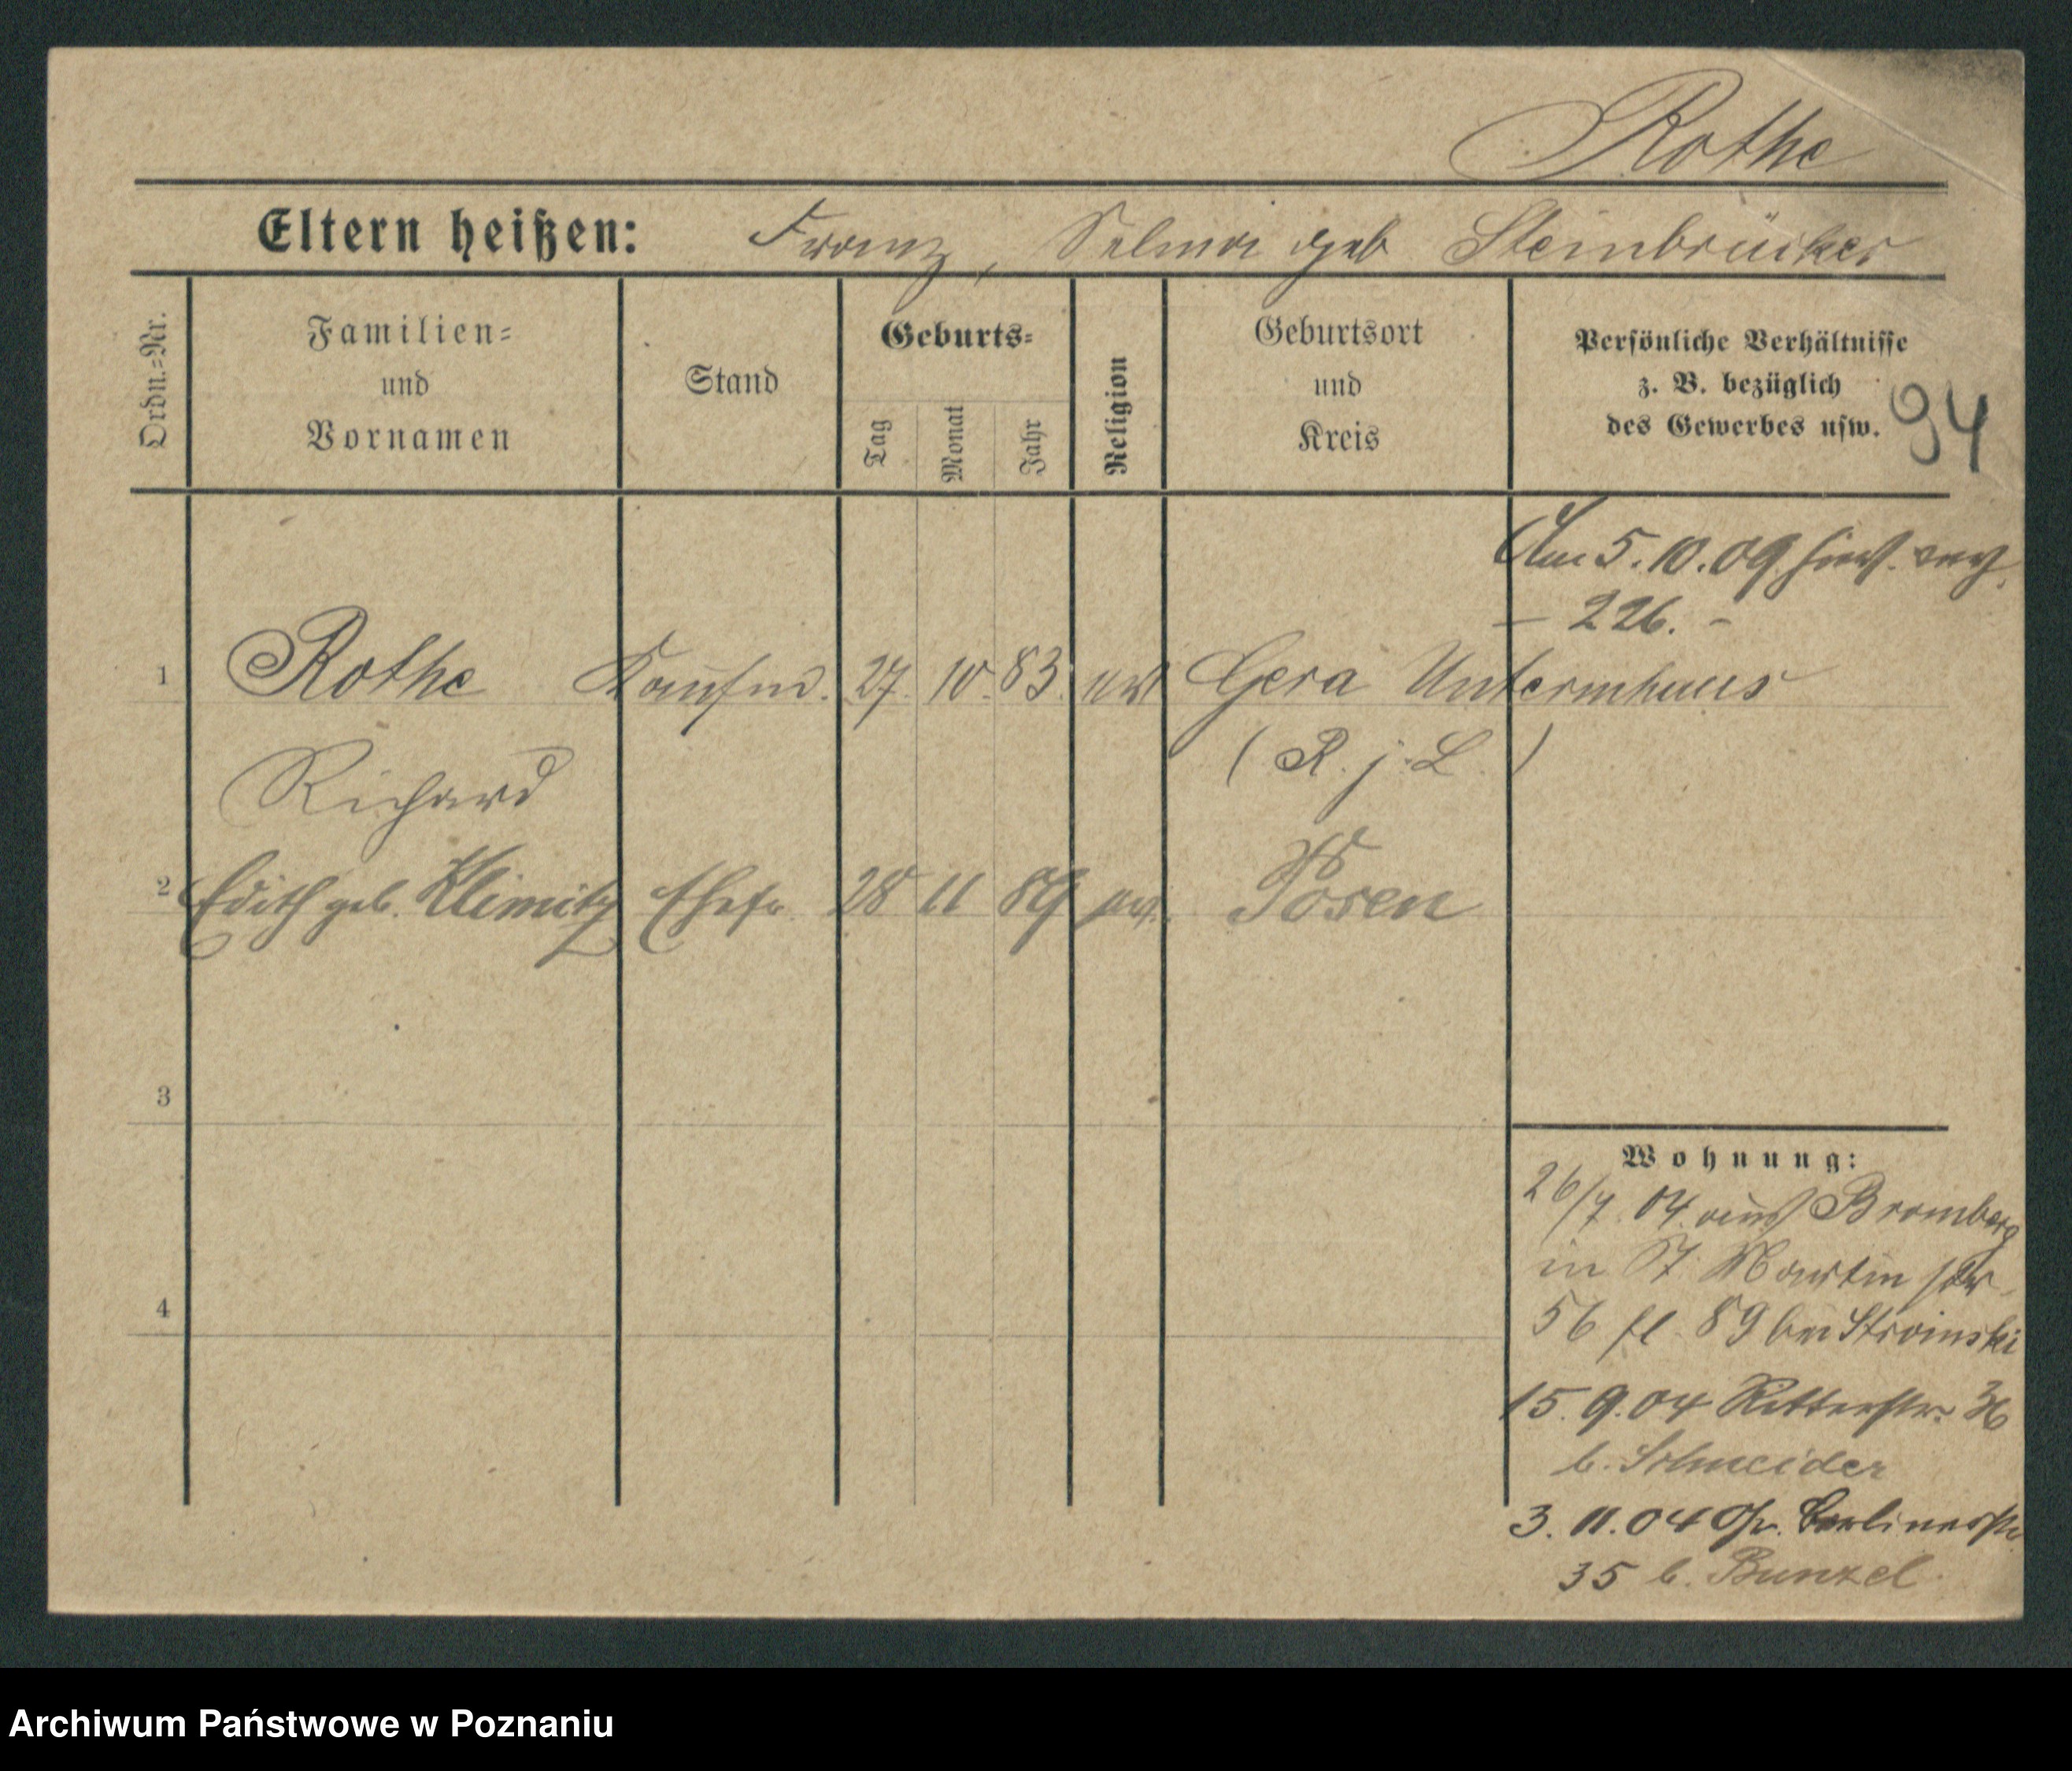 Rothe
Eltern heißen: Franz, Selma geb Steinbrücker
Ordn.=Nr.
Familien=
und
Vornamen
Stand
Geburts=
Tag
Monat
Jahr
Religion
Geburtsort
und
Kreis
Persönliche Verhältnisse
z. B. bezüglich
des Gewerbes usw.
94
Am 5.10.09 hier.
– 226. –
1 Rothe Kaufm. 27. 10. 83. ev Gera Untermhaus
Richard (R. j. L.)
2 Edith geb. Klimitz Ehefr. 28 11 89 ev. Posen
3
4
Wohnung:
26/7. 04. aus Bromberg
in St Martin str
56 fl. 89 bei Stroinski
15. 9. 04 Ritterstr. 36
b. Schneider
3. 11. 04 Gr. Berlinerstr.
35 b. Bunzel.
Archiwum Państwowe w Poznaniu